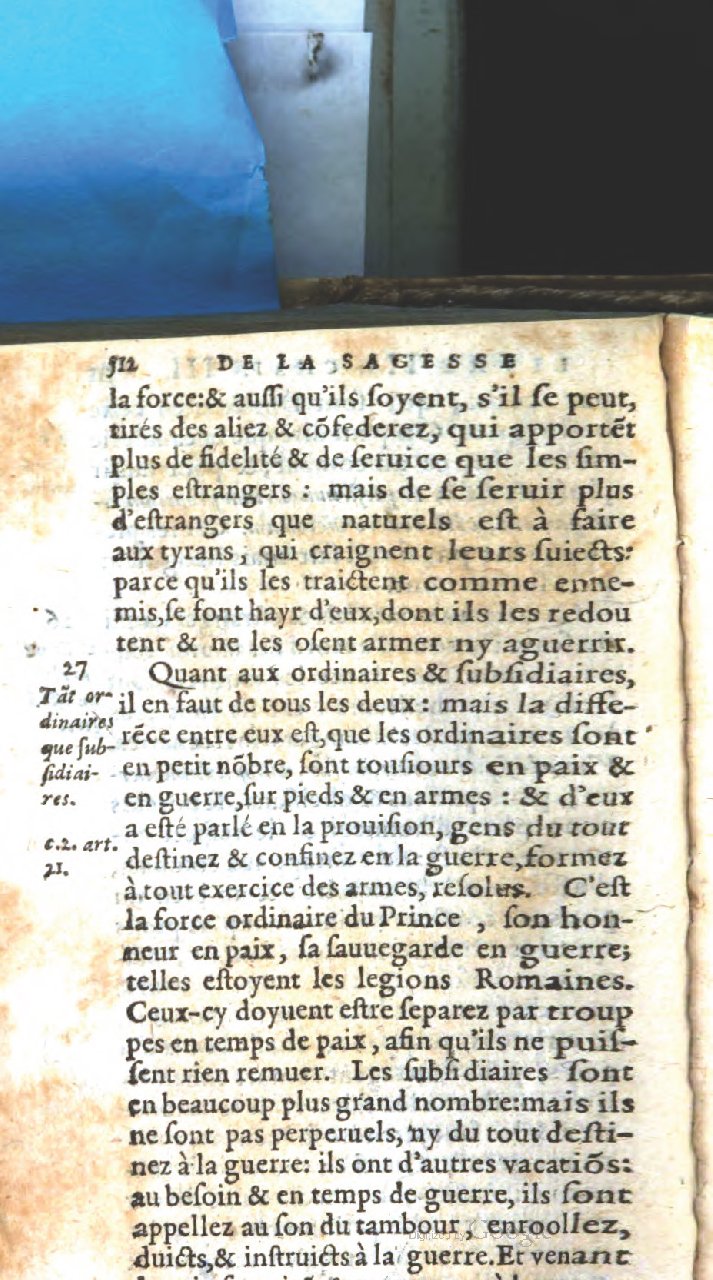 512 DE LA SAGESSE
la force:& auſſi qu'ils ſoyent, s'il ſe peut,
tirés des aliez & cõfederez, qui apportẽt
plus de fidelité & de ſeruice que les ſim-
ples eſtrangers : mais de ſe ſeruir plus
d'eſtrangers que naturels eſt à faire
aux tyrans, qui craignent leurs ſuiects:
parce qu'ils les traictent comme enne-
mis,ſe font hayr d'eux,dont ils les redou
tent & ne les oſent armer ny aguerrir.
27
Quant aux ordinaires & ſubſidiaires,
Tãt or-
dinaires
que ſub-
ſidiai-
res.
il en faut de tous les deux : mais la diffe-
rẽce entre eux eſt,que les ordinaires ſont
en petit nõbre, ſont touſiours en paix &
en guerre,ſur pieds & en armes : & d'eux
c.2. art.
21.
a eſté parlé en la prouiſion, gens du tout
deſtinez & confinez en la guerre,formez
à tout exercice des armes, reſolus. C'eſt
la force ordinaire du Prince , ſon hon-
neur en paix, ſa ſauuegarde en guerre;
telles eſtoyent les legions Romaines.
Ceux-cy doyuent eſtre ſeparez par troup
pes en temps de paix, afin qu'ils ne puiſ-
ſent rien remuer. Les ſubſidiaires ſont
en beaucoup plus grand nombre:mais ils
ne ſont pas perpetuels, ny du tout deſti-
nez à la guerre: ils ont d'autres vacatiõs:
au beſoin & en temps de guerre, ils ſont
appellez au ſon du tambour, enroollez,
duicts,& inſtruicts à la guerre.Et venant